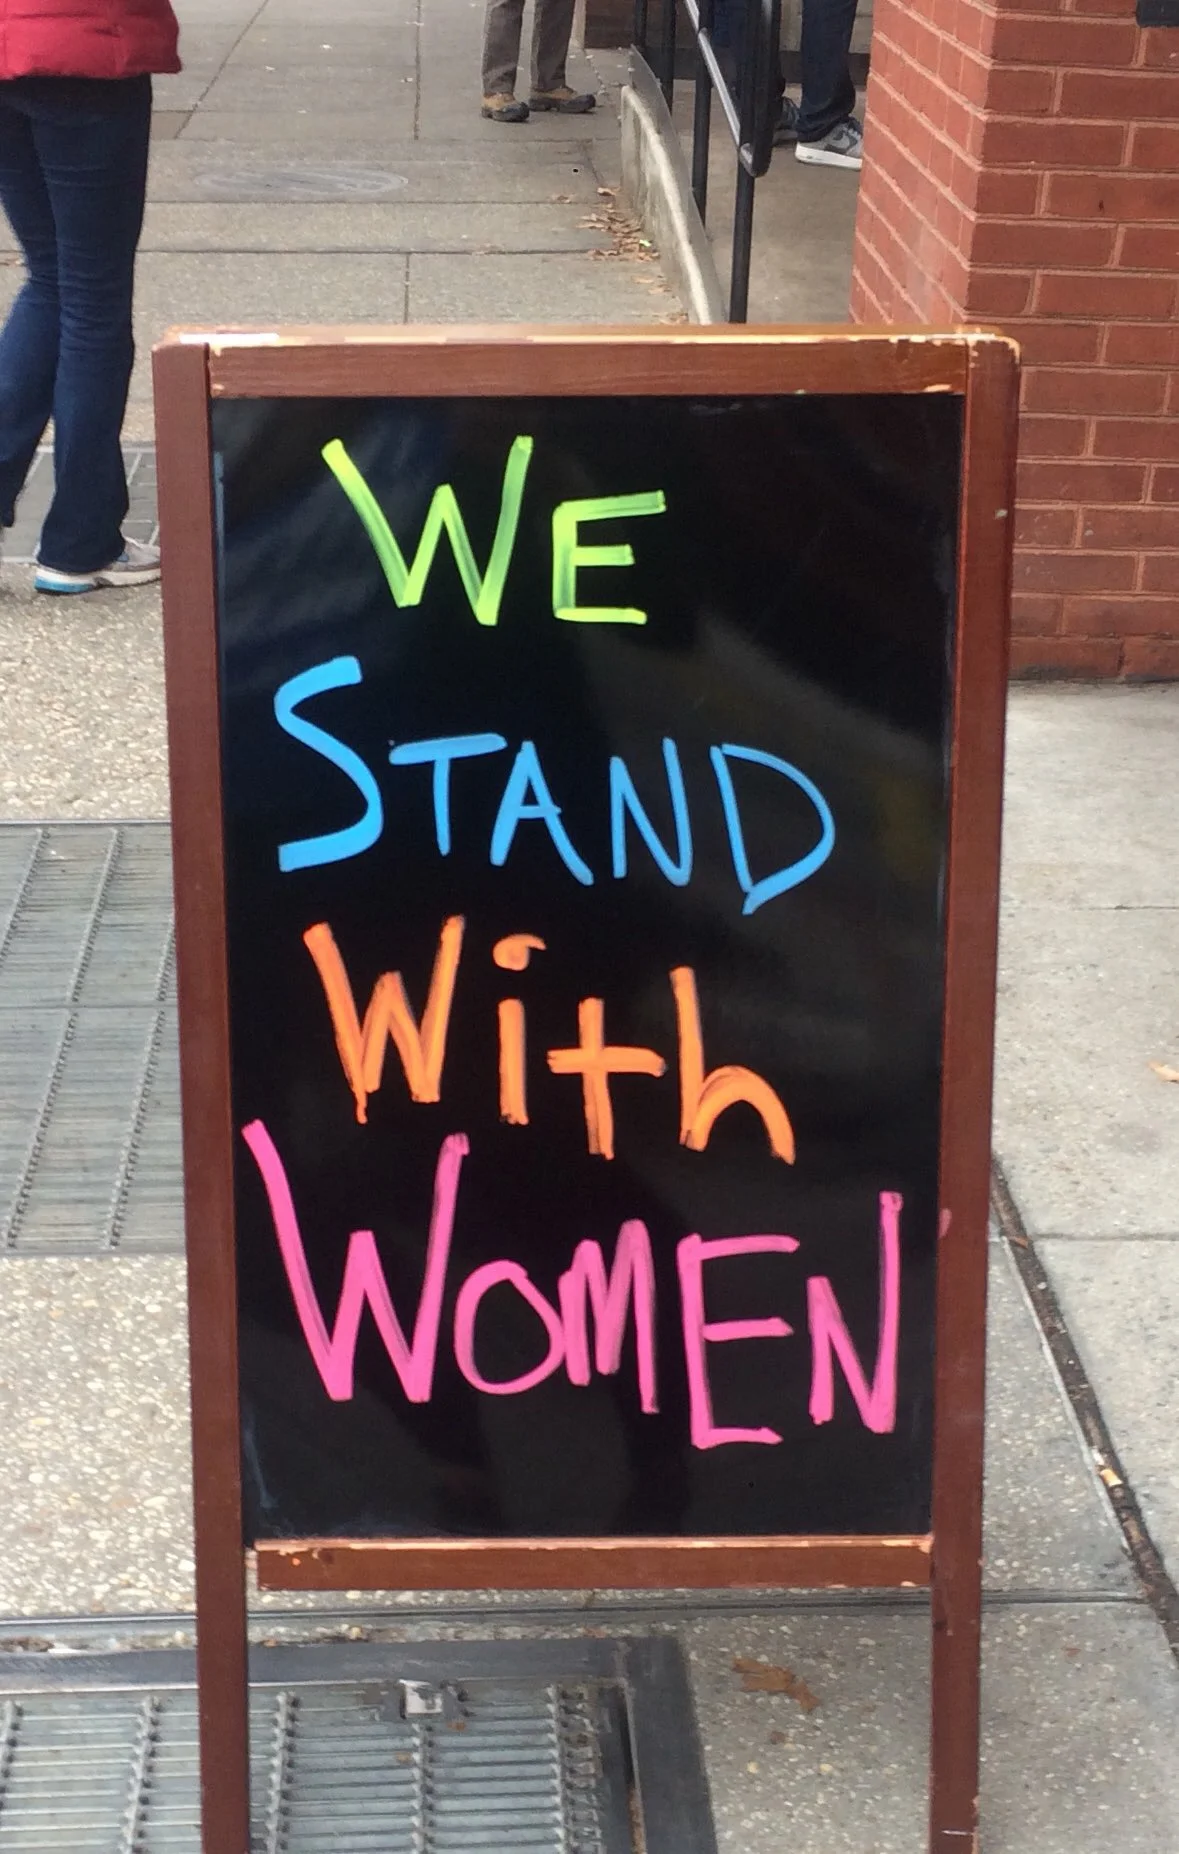 WE
STAND
With
WOMEN